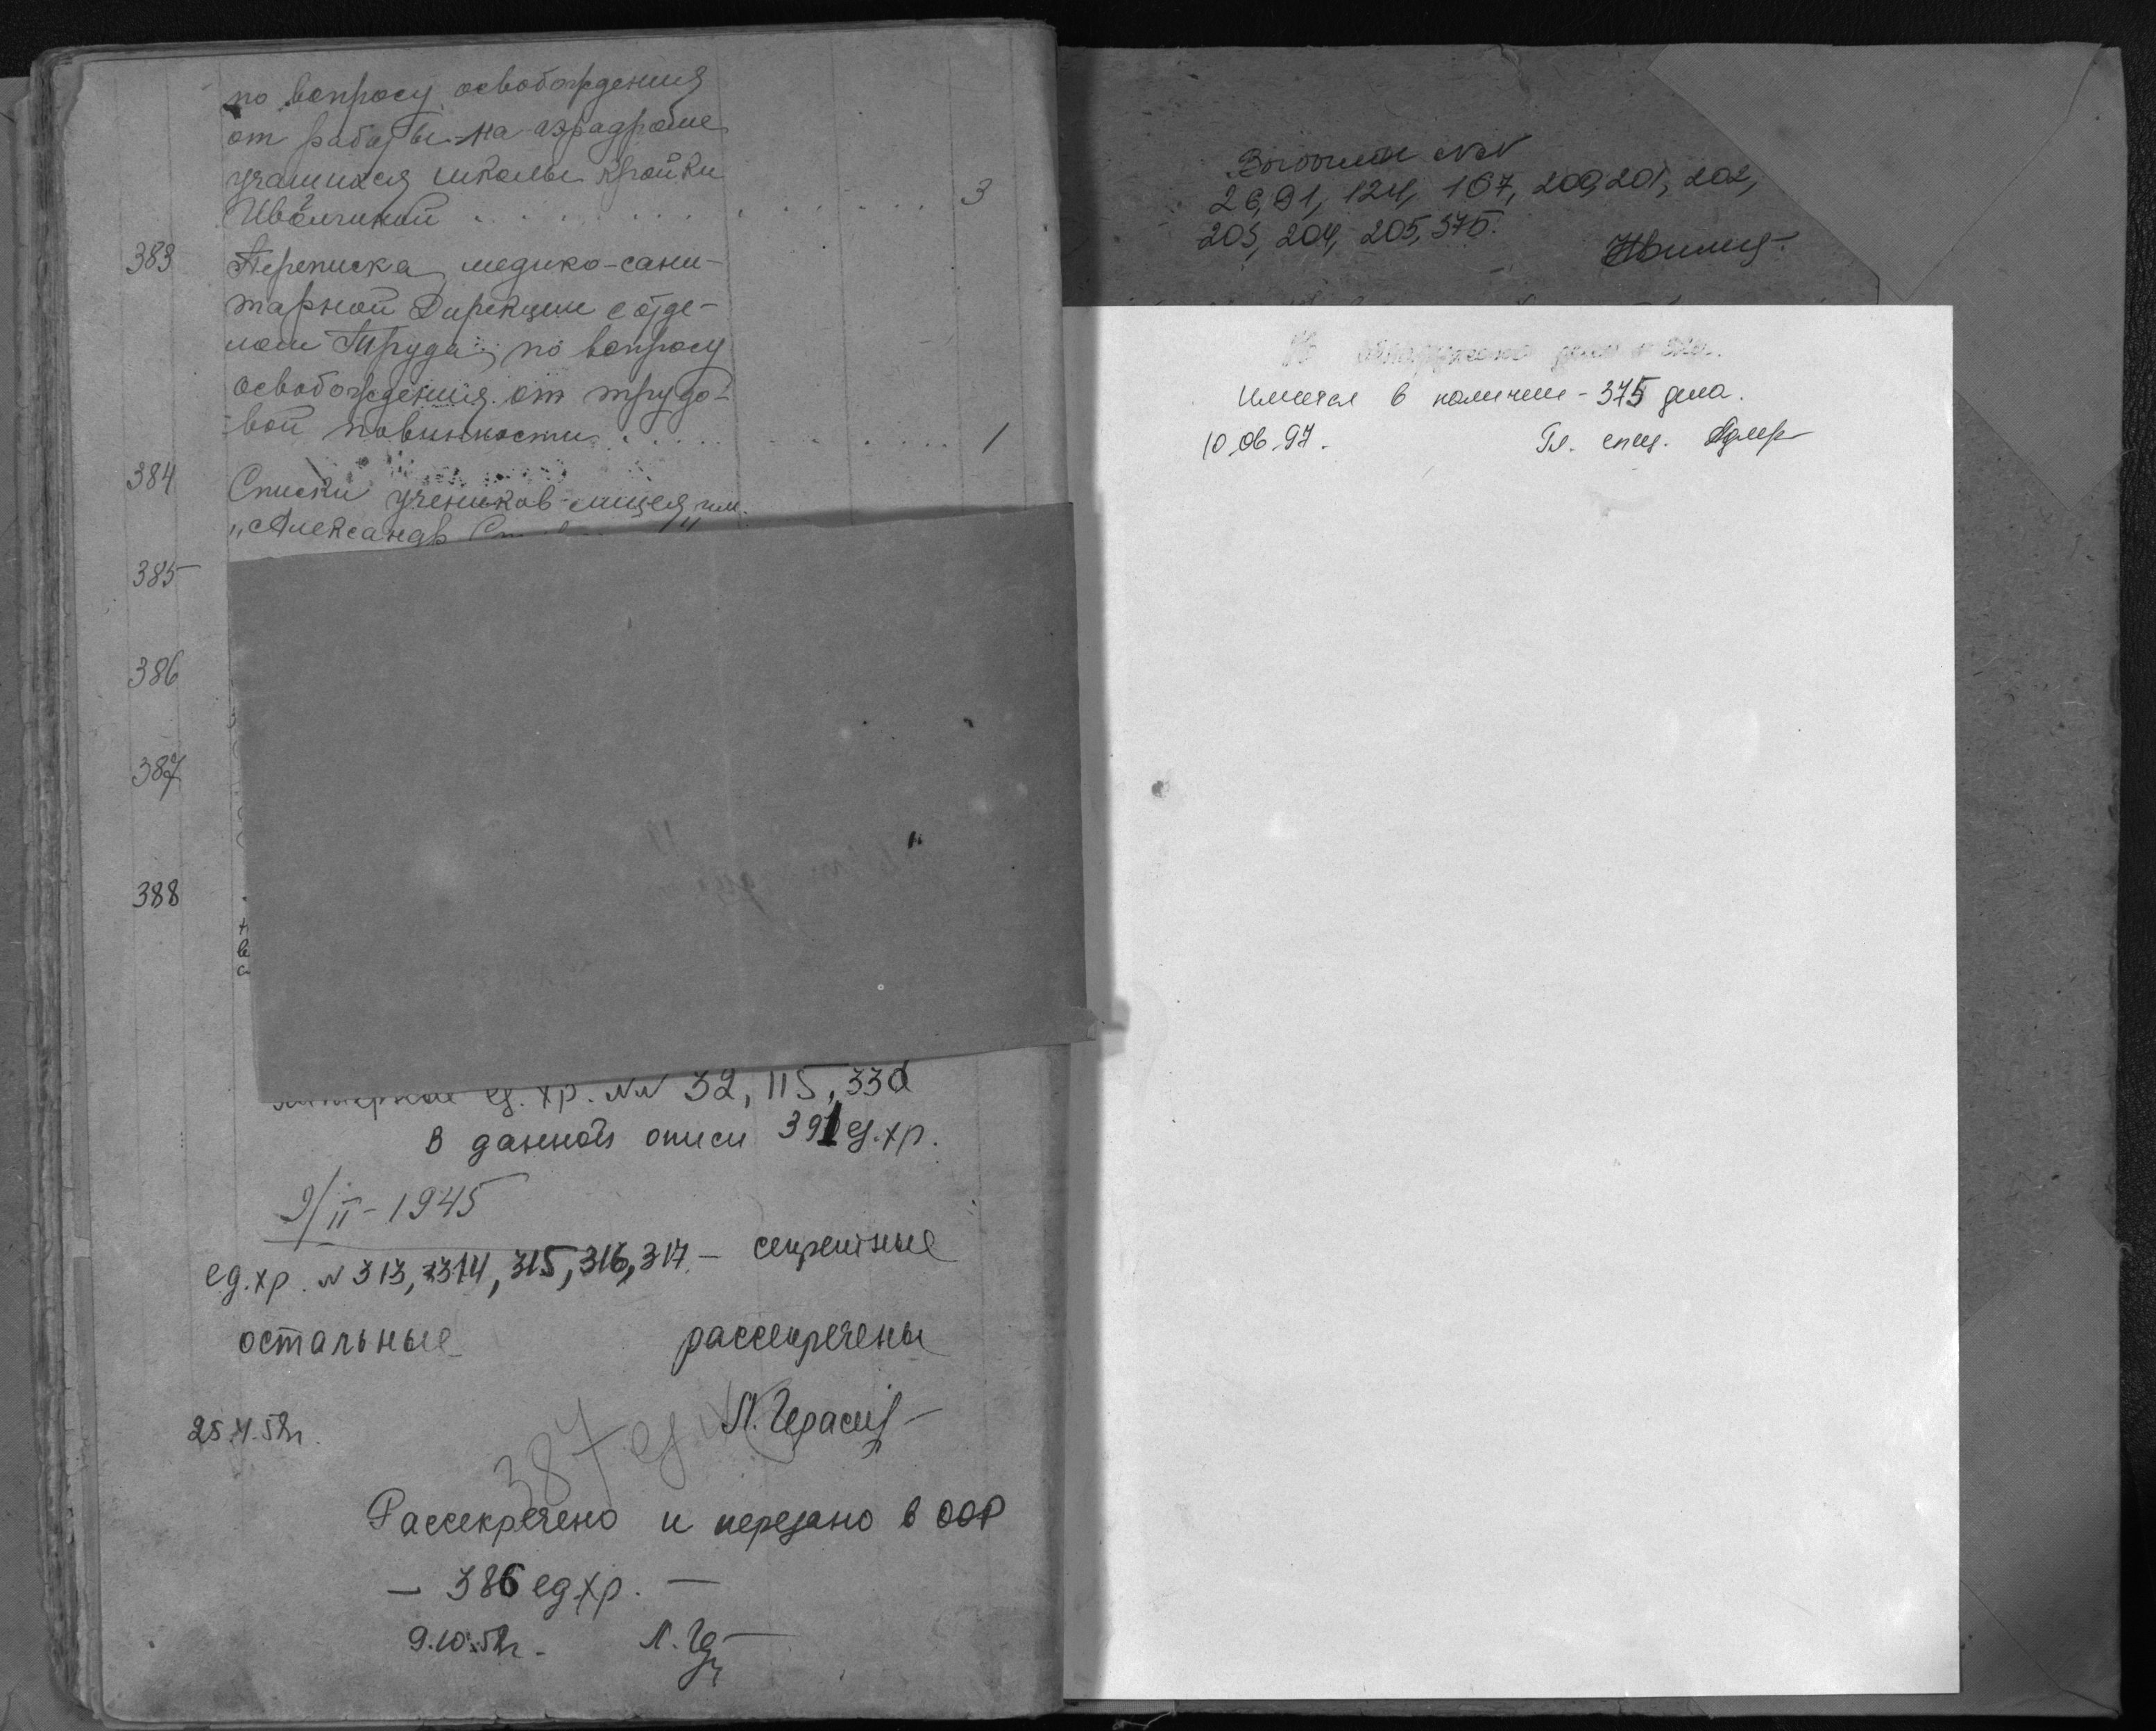 по вопросу освобождения
от работы на аэрадроме
учащихся школы кройки
3
383 Переписка медико-сани-
тарной Дирекции с отде-
лом Труда по вопросу
освобождения от трудо-
вой повинности 1
384 Списки учеников лицея им.
„Александр
385
386
387
388
ед. хр. №№ 32, 115, 330
в данной описи 391 ед. хр.
9/II - 1945
ед. хр. № 313, 314, 315, 316, 317 - секретные
остальные рассекречены
387 ед.
Рассекречено и передано в ООФ
— 386 ед. хр. —
9.10.52г. Л.
Выбыли №№
26, 91, 124, 167, 200, 201, 202,
203, 204, 205, 375.
Имеется в наличии - 375 дела.
10.06.97. Гл. спец.